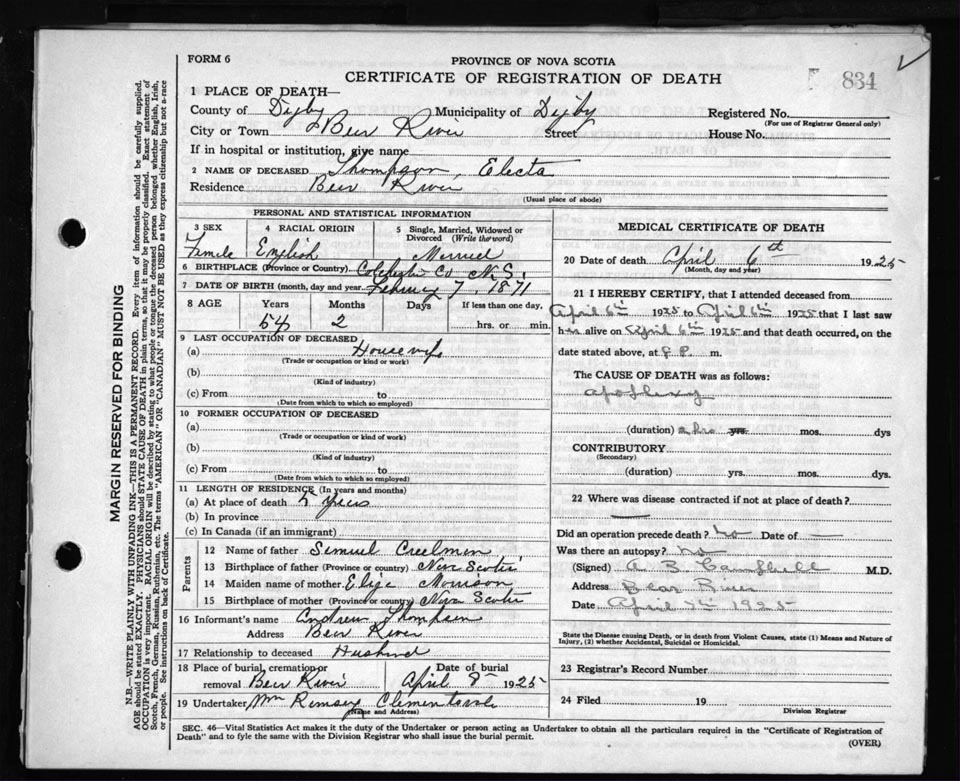 FORM 6
PROVINCE OF NOVA SCOTIA
CERTIFICATE OF REGISTRATION OF DEATH
834
1 PLACE OF DEATH—
County of Digby Municipality of Digby Registered No.
(For use of Registrar General only)
City or Town Bear River Street House No.
If in hospital or institution, give name
2 NAME OF DECEASED Thompson, Electa
Residence Bear River
(Usual place of abode)
PERSONAL AND STATISTICAL INFORMATION
3 SEX 4 RACIAL ORIGIN 5 Single, Married, Widowed or Divorced (Write the word)
Female English Married
6 BIRTHPLACE (Province or Country) Colchester Co N.S.
7 DATE OF BIRTH (month, day and year) February 7, 1871
8 AGE Years Months Days If less than one day,
54 2 hrs. or min.
9 LAST OCCUPATION OF DECEASED
(a) Housewife
(Trade or occupation or kind or work)
(b)
(Kind of industry)
(c) From to
(Date from which to which so employed)
10 FORMER OCCUPATION OF DECEASED
(a)
(Trade or occupation or kind of work)
(b)
(Kind of industry)
(c) From to
(Date from which to which so employed)
11 LENGTH OF RESIDENCE (In years and months)
(a) At place of death years
(b) In province
(c) In Canada (if an immigrant)
Parents
12 Name of father Samuel Creelman
13 Birthplace of father (Province or country) Nova Scotia
14 Maiden name of mother Eliza Morrison
15 Birthplace of mother (Province or country) Nova Scotia
16 Informant's name Andrew Thompson
Address Bear River
17 Relationship to deceased Husband
18 Place of burial, cremation or removal Bear River Date of burial April 8 1925
19 Undertaker, Wm Ramsay Clementsvale
(Name and Address)
MEDICAL CERTIFICATE OF DEATH
20 Date of death April 6th 1925
(Month, day and year)
21 I HEREBY CERTIFY, that I attended deceased from
April 6th 1925 to April 6th 1925 that I last saw
her alive on April 6th 1925 and that death occurred, on the
date stated above, at 8 P. m.
The CAUSE OF DEATH was as follows:
apoplexy
(duration) 2 hrs yrs. mos. dys
CONTRIBUTORY
(Secondary)
(duration) yrs. mos. dys
22 Where was disease contracted if not at place of death?
Did an operation precede death? no Date of —
Was there an autopsy? no
(Signed) A. B. Campbell M.D.
Address Bear River
Date April 1925
State the Disease causing Death, or in death from Violent Causes, state (1) Means and Nature of
Injury, (2) whether Accidental, Suicidal or Homicidal.
23 Registrar's Record Number
24 Filed 19
Division Registrar
SEC. 46—Vital Statistics Act makes it the duty of the Undertaker or person acting as Undertaker to obtain all the particulars required in the "Certificate of Registration of
Death" and to fyle the same with the Division Registrar who shall issue the burial permit.
(OVER)
MARGIN RESERVED FOR BINDING
N.B.—WRITE PLAINLY WITH UNFADING INK—THIS IS A PERMANENT RECORD. Every item of information should be carefully supplied.
AGE should be stated EXACTLY. PHYSICIANS should STATE CAUSE OF DEATH in plain terms, so that it may be properly classified. Exact statement of
OCCUPATION is very important. RACIAL ORIGIN will be described by stating to what people or tongue the deceased person belonged whether English, Irish,
Scotch, French, German, Russian, Ruthenian, etc. The terms "AMERICAN" OR "CANADIAN" MUST NOT BE USED as they express citizenship but not a race
or people. See instructions on back of Certificate.